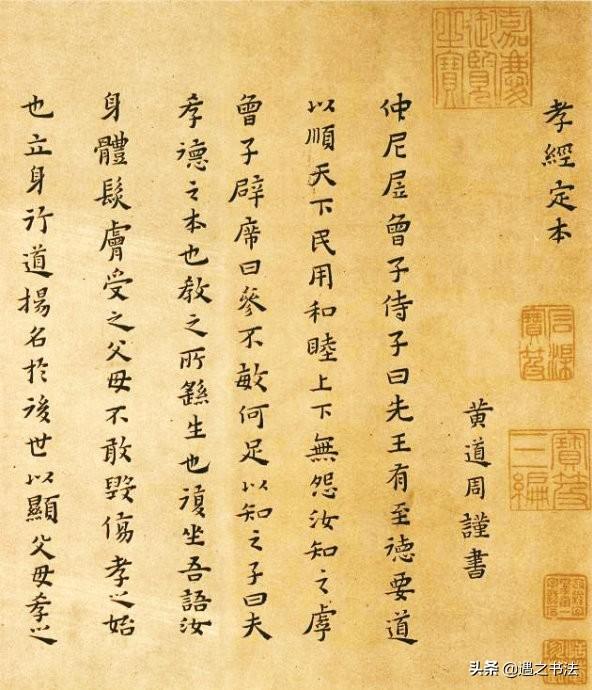 孝經定本
黄道周謹書
仲尼凥曾子侍子曰先王有至德要道
以順天下民用和睦上下無怨汝知之虖
曾子辟席曰參不敏何足以知之子曰夫
孝德之本也教之所繇生也復坐吾語汝
身體髮膚受之父母不敢毀傷孝之始
也立身行道揚名於後世以顯父母孝之
嘉慶御覽之寶
石渠寶笈
寶笈三編
头条 @遇之书法